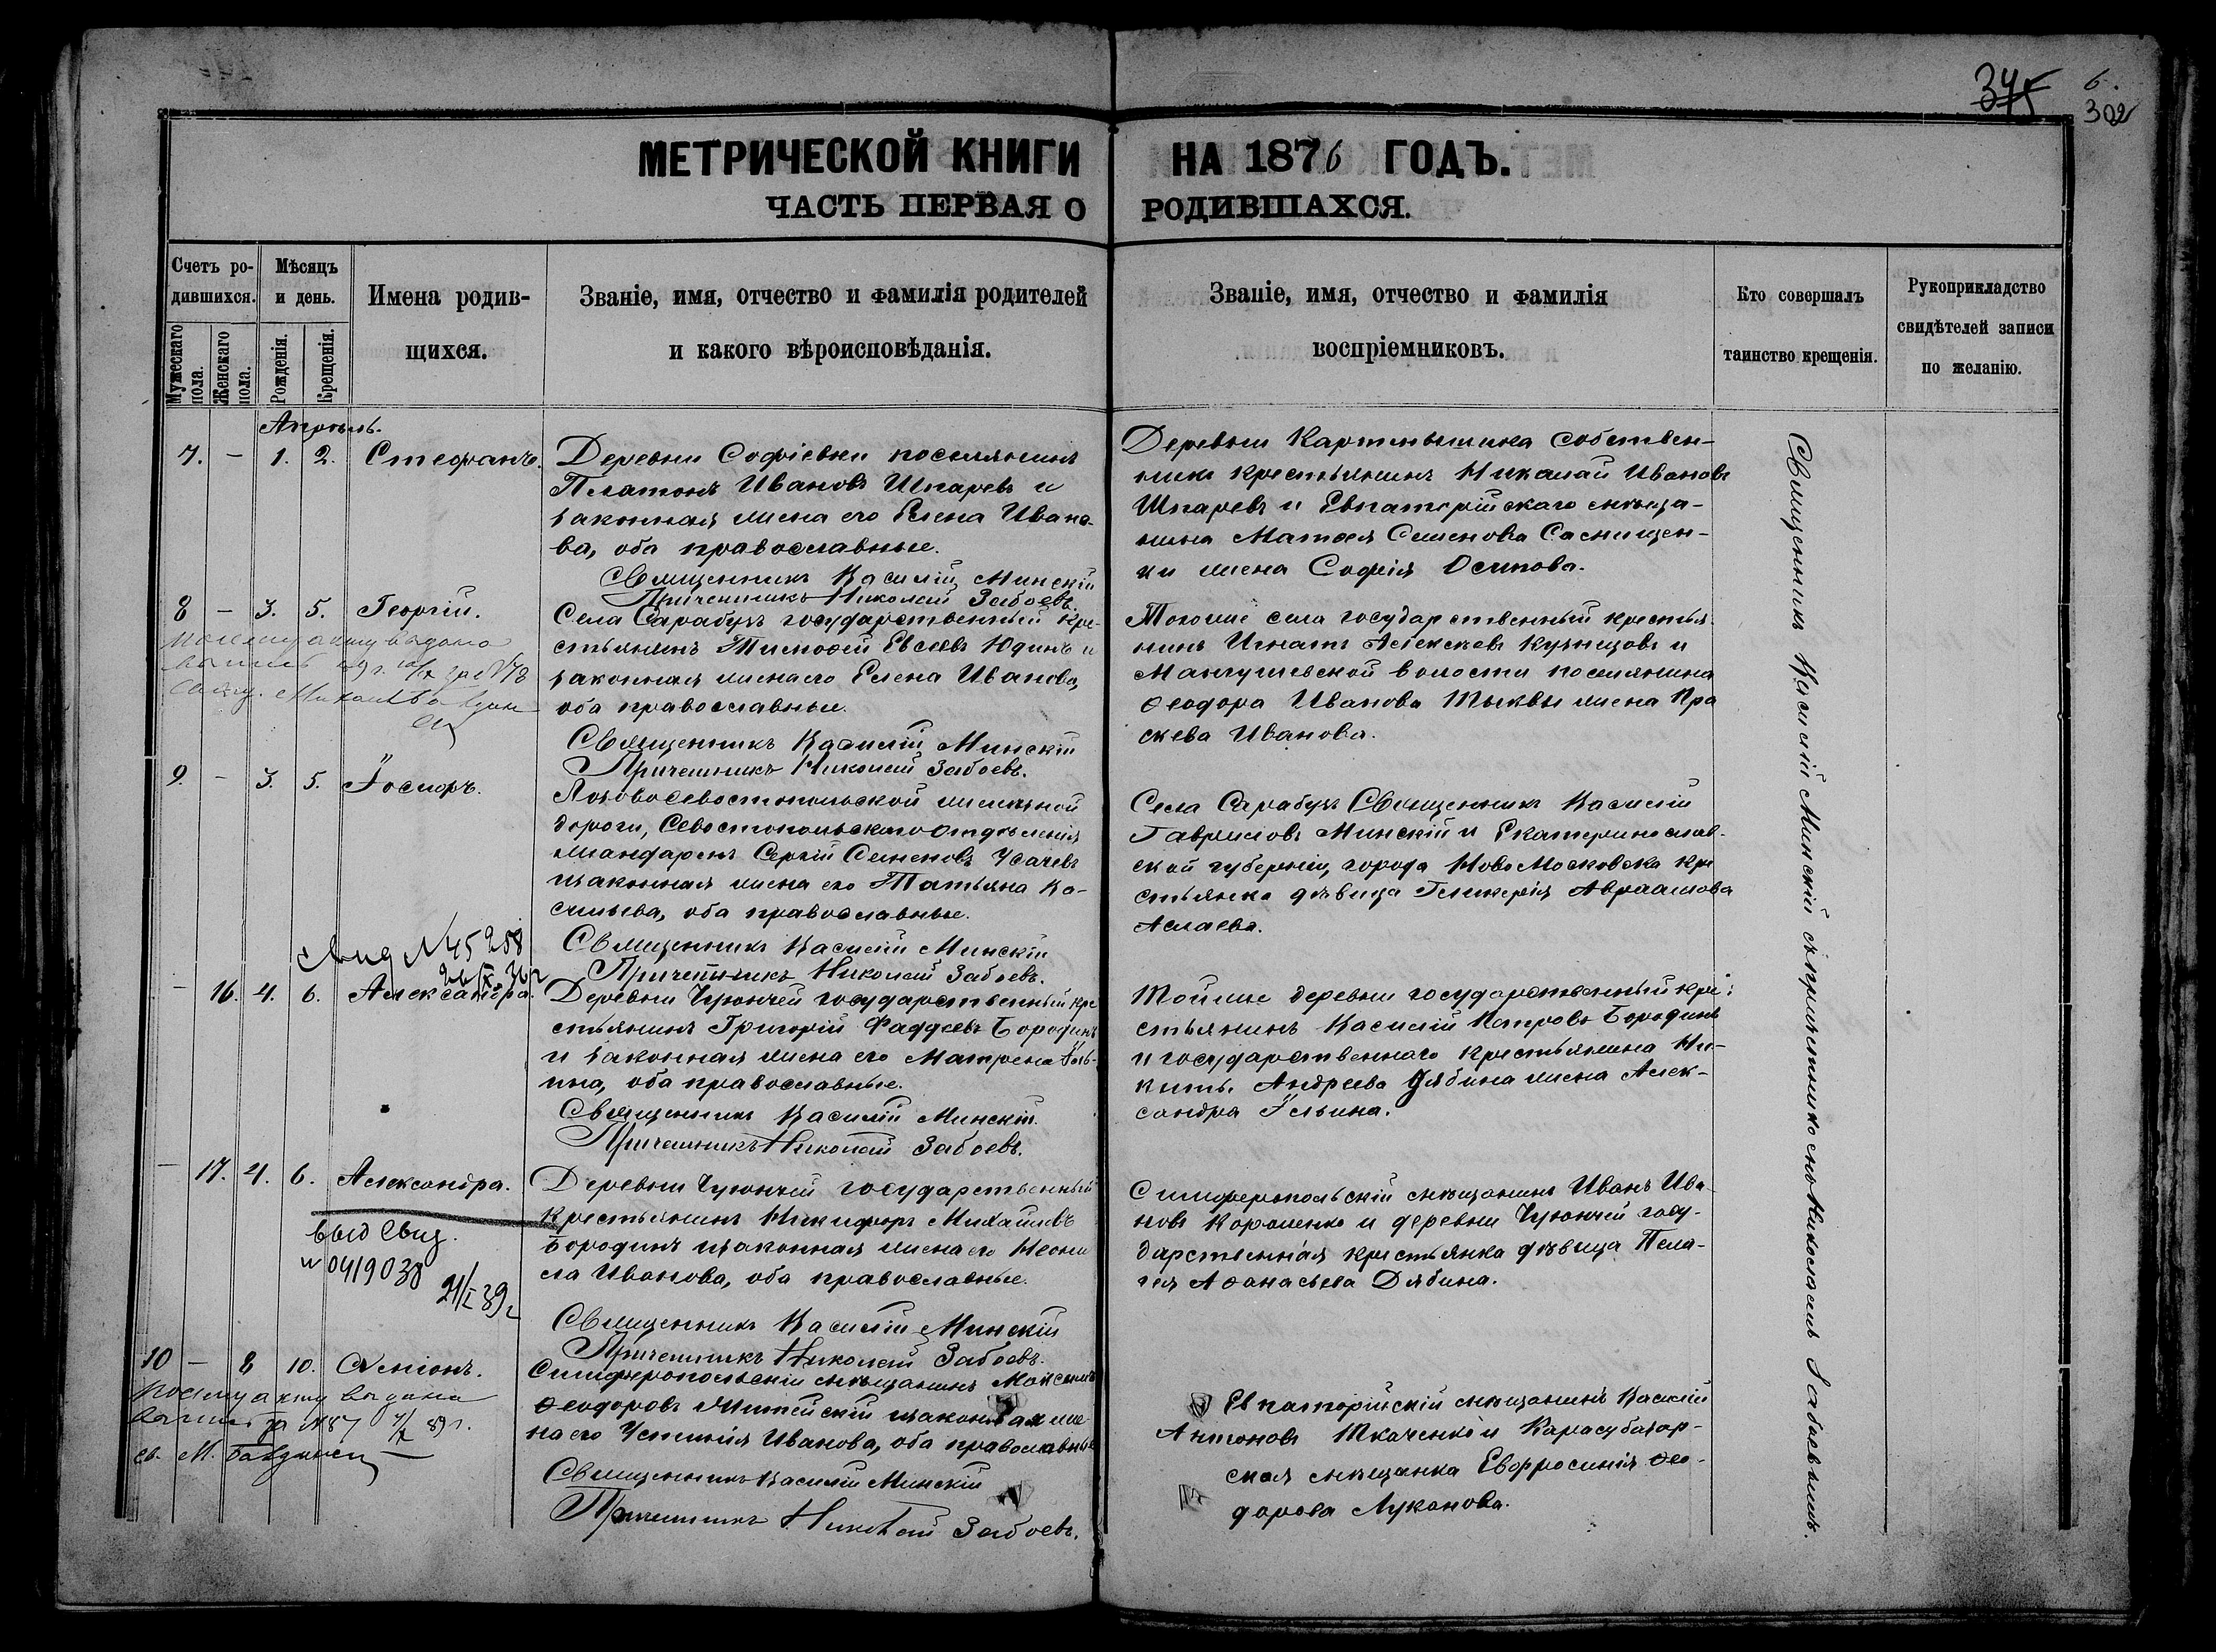 375
6.
302
МЕТРИЧЕСКОЙ КНИГИ НА 1876 ГОДЪ.
ЧАСТЬ ПЕРВАЯ О РОДИВШАХСЯ.
Счетъ ро-
дившихся.
Мужескаго пола.
Женскаго пола.
Мѣсяцъ
и день.
Рожденія.
Крещенія.
Имена родив-
щихся.
Званіе, имя, отчество и фамилія родителей
и какого вѣроисповѣданія.
Званіе, имя, отчество и фамилія
воспріемниковъ.
Кто совершалъ
таинство крещенія.
Рукоприкладство
свидѣтелей записи
по желанію.
Апрѣль.
7. - 1. 2. Стефанъ.
Деревни Софіевки поселянинъ
Платонъ Ивановъ Шпаревъ и
законная жена его Елена Ивано-
ва, оба православные.
Священникъ Василій Минскій
Причетникъ Николай Забоевъ.
Деревни Картмышика собствен-
никъ крестьянинъ Николай Ивановъ
Шпаревъ и Евпаторійскаго мѣща-
нина Матѳея Семенова Саснищен-
ки жена Софія Осипова.
8 - 3. 5. Георгій.
По сему акту выдана
Села Сарабузъ государственный кре-
стьянинъ Тимоѳей Евсеевъ Юдинъ и
законная жена его Елена Иванова,
оба православные.
Священникъ Василій Минскій
Причетникъ Николай Забоевъ.
Тогоже села государственный крестья-
нинъ Игнатъ Алексѣевъ Кузнецовъ и
Мангушевской волости поселянина
Ѳеодора Иванова Тыквы жена Пра
скева Иванова.
9. - 3. 5. Іосифъ.
Лозовосевастопольской желѣзной
дороги, Севастопольскаго отдѣленія
жандармъ Сергій Семеновъ Усачевъ
изаконная жена его Татьяна Ва-
сильева, оба православные.
Священникъ Василій Минскій
Причетникъ Николай Забоевъ.
Села Сарабузъ Священникъ Василій
Гавриловъ Минскій и Екатеринослав-
ской губерніи, города НовоМосковска кре
стьянка дѣвица Гликерія Авраамова
Аслаева.
N 45208
- 16. 4. 6. Александра.
Деревни Чуюнчей государственный кре
стьянинъ Григорій Фаддеевъ Бородинъ
и законная жена его Матрена Іль-
ина, оба православные.
Священникъ Василій Минскій.
Причетникъ Николай Забоевъ.
Тойже деревни государственный кре-
стьянинъ Василій Петровъ Бородинъ
и государственнаго крестьянина Ни-
киты Андреева Дябина жена Алек-
сандра Ільина.
- 17. 4. 6. Александра.
выд Свид.
N 0419038
21/I 39г
Деревни Чуюнчей государственный
крестьянинъ Никифоръ Михайловъ
Бородинъ изаконная жена его Неони
ла Иванова, оба православные.
Священникъ Василій Минскій
Причетникъ Николай Забоевъ.
Симферопольскій мѣщанинъ Иванъ Ива
новъ Короленко и деревни Чуюнчей госу-
дарственная крестьянка дѣвица Пела-
гея Аѳанасьева Дябина.
10 - 8 10. Симеонъ.
По сему акту выдана
св. М.
Симферопольскій мѣщанинъ Моисей
Ѳеодоровъ изаконная же
на его Устинія Иванова, оба православные
Священникъ Василій Минскій
Причетникъ Николай Забоевъ.
Евпаторійскій мѣщанинъ Василій
Антоновъ Ткаченко и Карасубазар-
ская мѣщанка Евфросинія Ѳео-
дорова Луканова.
Священникъ Василій Минскій съ причетникомъ Николаемъ Забоевымъ.